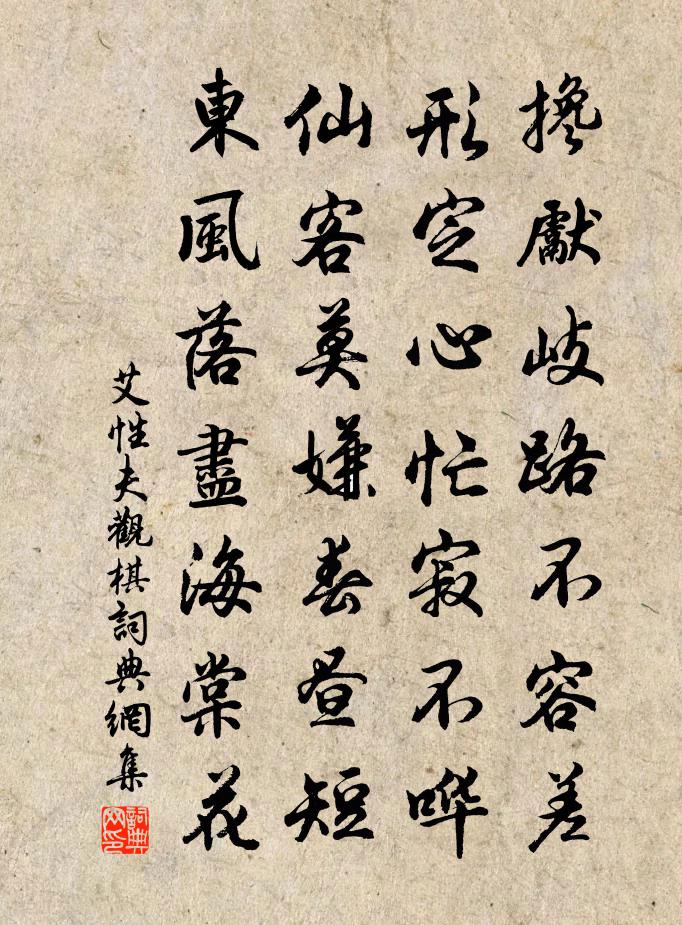 搀獻岐路不容差
形定心忙寂不哗
仙客莫嫌春昼短
東風落盡海棠花
艾性夫觀棋詞典網集
詞典网印